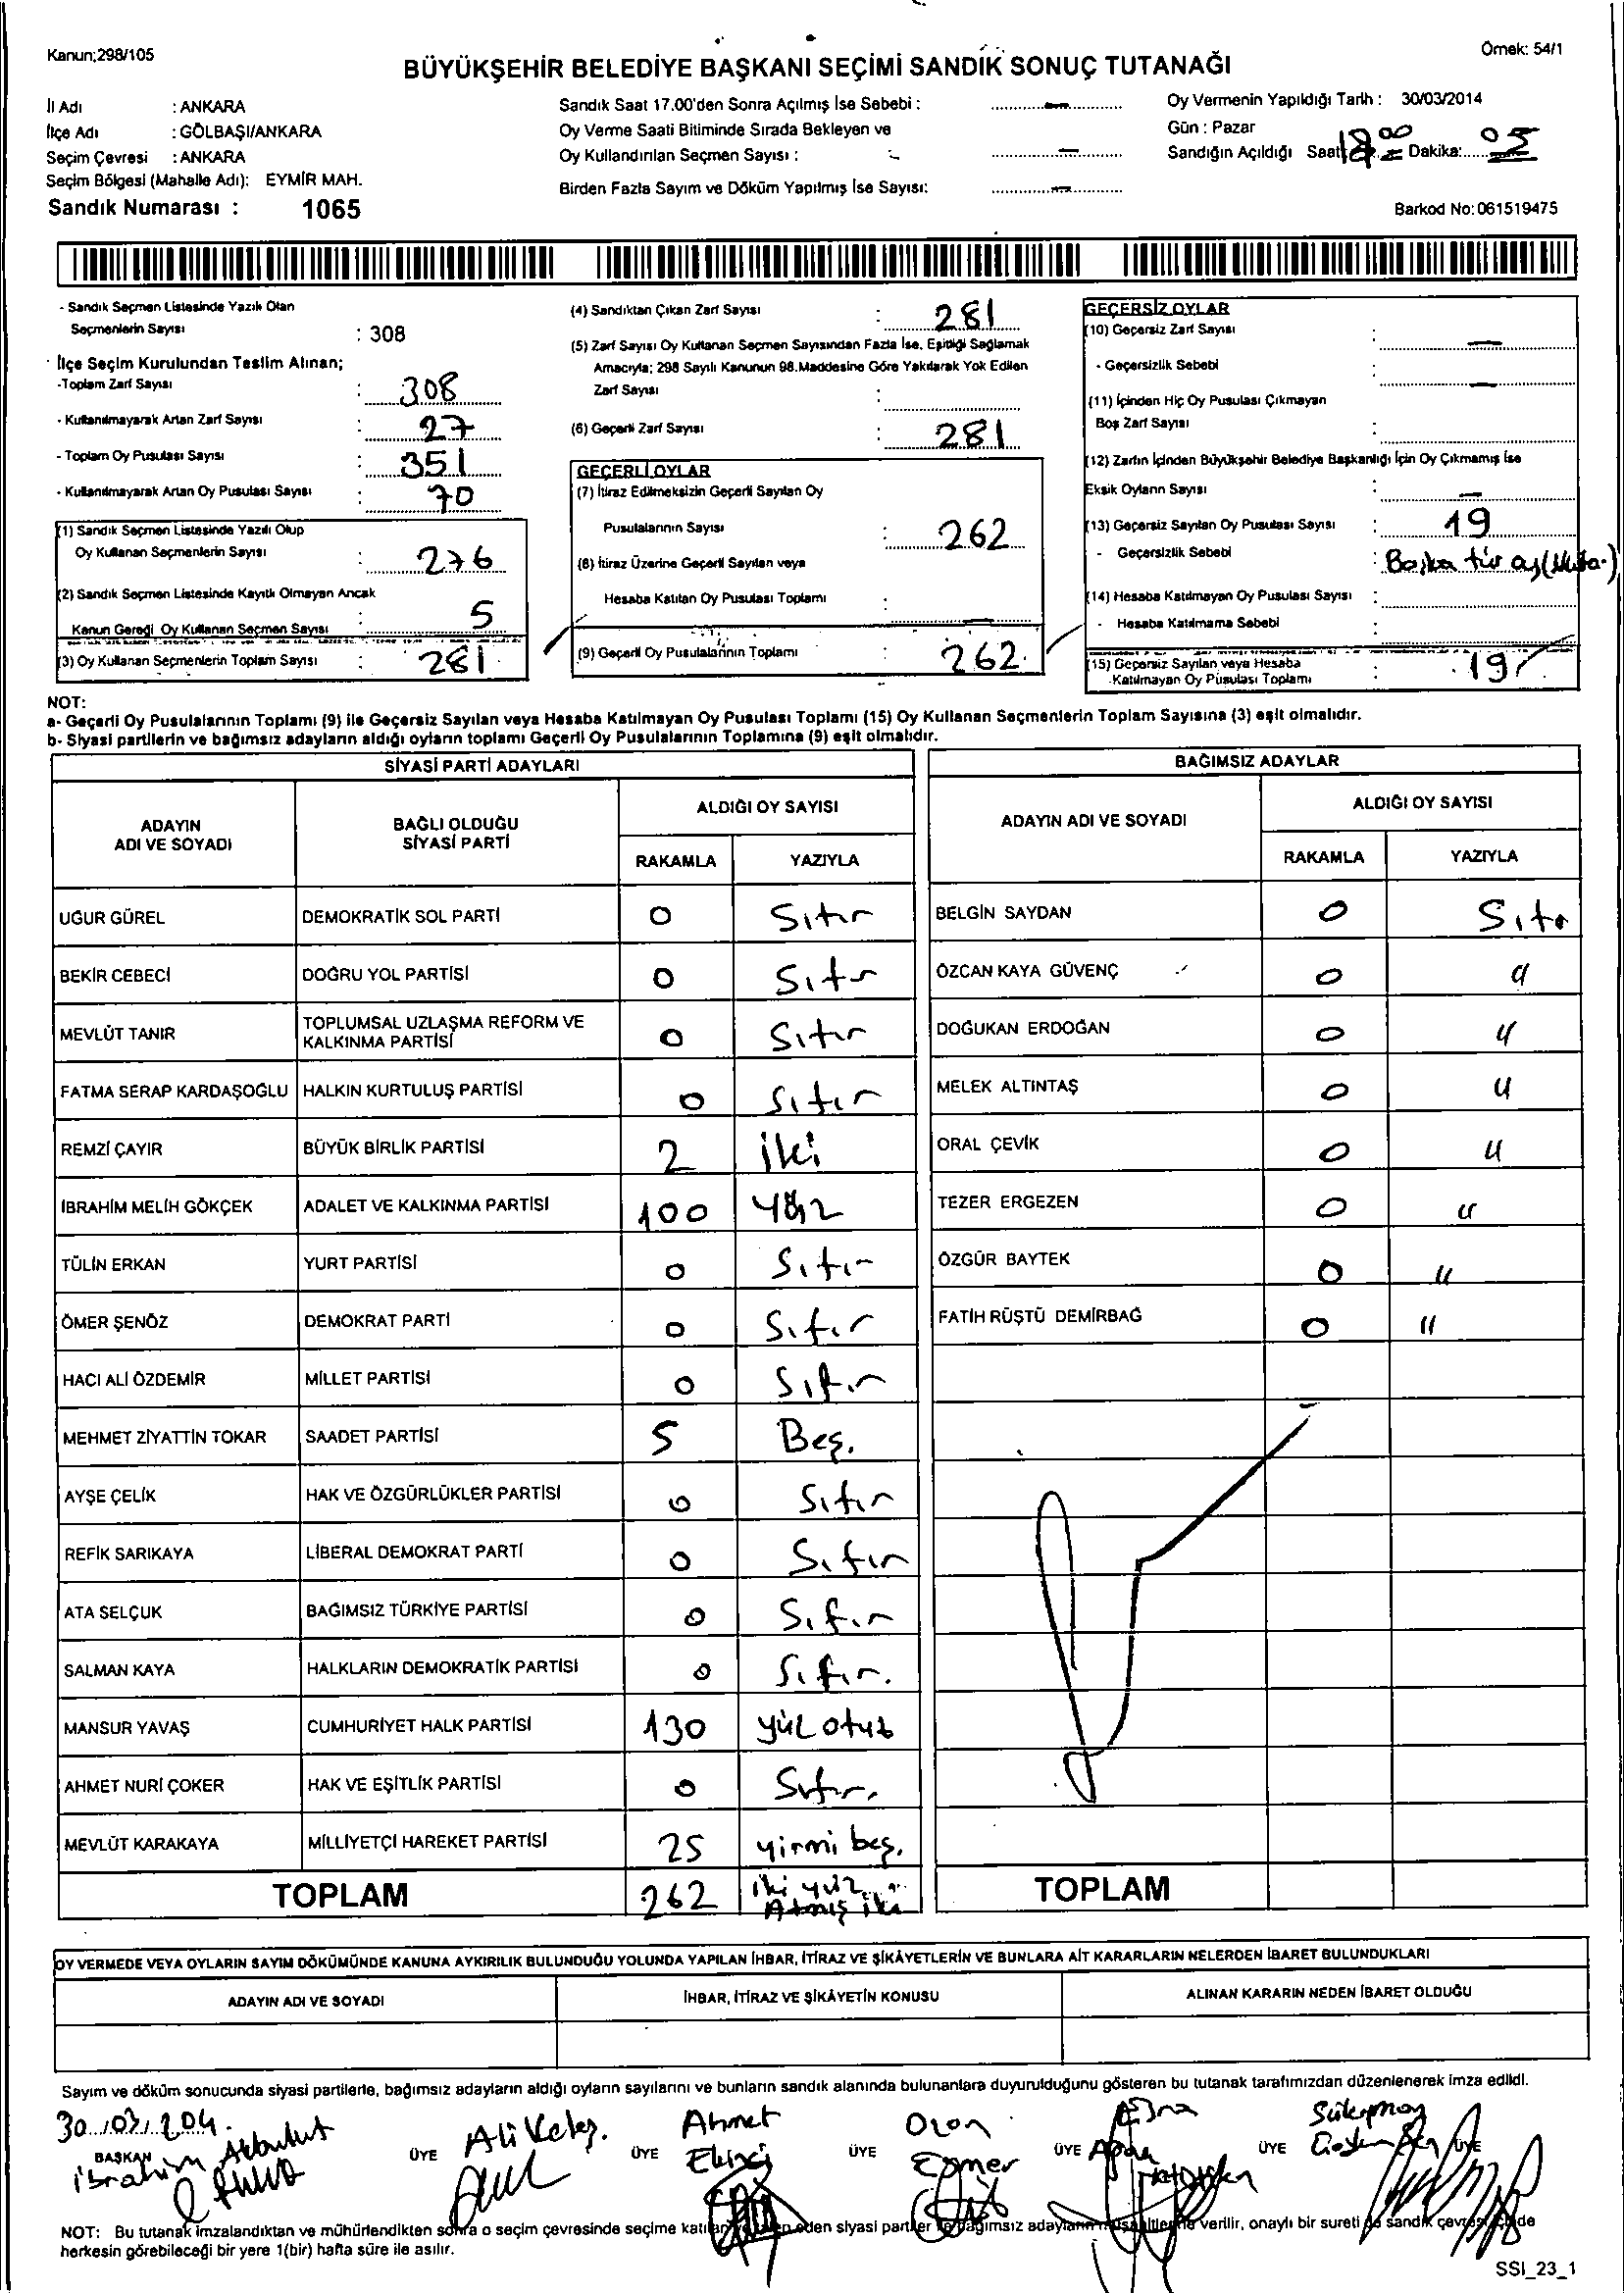 Kanun;298/105
Örnek: 54/1
BÜYÜKŞEHİR BELEDİYE BAŞKANI SEÇİMİ SANDIK SONUÇ TUTANAĞI
İl Adı : ANKARA
İlçe Adı : GÖLBAŞI/ANKARA
Seçim Çevresi : ANKARA
Seçim Bölgesi (Mahalle Adı): EYMİR MAH.
Sandık Numarası : 1065
Sandık Saat 17.00'den Sonra Açılmış İse Sebebi :
Oy Verme Saati Bitiminde Sırada Bekleyen ve
Oy Kullandırılan Seçmen Sayısı :
Birden Fazla Sayım ve Döküm Yapılmış İse Sayısı:
Oy Vermenin Yapıldığı Tarih : 30/03/2014
Gün : Pazar
Sandığın Açıldığı Saat: Dakika: 05
Barkod No: 061519475
- Sandık Seçmen Listesinde Yazılı Olan
Seçmenlerin Sayısı : 308
İlçe Seçim Kurulundan Teslim Alınan;
-Toplam Zarf Sayısı : 308
- Kullanılmayarak Artan Zarf Sayısı : 27
- Toplam Oy Pusulası Sayısı : 351
- Kullanılmayarak Artan Oy Pusulası Sayısı : 70
(1) Sandık Seçmen Listesinde Yazılı Olup
Oy Kullanan Seçmenlerin Sayısı : 276
(2) Sandık Seçmen Listesinde Kayıtlı Olmayan Ancak
Kanun Gereği Oy Kullanan Seçmen Sayısı : 5
(3) Oy Kullanan Seçmenlerin Toplam Sayısı : 281
(4) Sandıktan Çıkan Zarf Sayısı : 281
(5) Zarf Sayısı Oy Kullanan Seçmen Sayısından Fazla İse, Eşitliği Sağlamak
Amacıyla; 298 Sayılı Kanunun 98.Maddesine Göre Yakılarak Yok Edilen
Zarf Sayısı :
(6) Geçerli Zarf Sayısı : 281
GEÇERLİ OYLAR
(7) İtiraz Edilmeksizin Geçerli Sayılan Oy
Pusulalarının Sayısı : 262
(8) İtiraz Üzerine Geçerli Sayılan veya
Hesaba Katılan Oy Pusulası Toplamı :
(9) Geçerli Oy Pusulalarının Toplamı : 262
GEÇERSİZ OYLAR
(10) Geçersiz Zarf Sayısı :
- Geçersizlik Sebebi :
(11) İçinden Hiç Oy Pusulası Çıkmayan
Boş Zarf Sayısı :
(12) Zarfın İçinden Büyükşehir Belediye Başkanlığı İçin Oy Çıkmamış İse
Eksik Oyların Sayısı :
(13) Geçersiz Sayılan Oy Pusulası Sayısı : 19
- Geçersizlik Sebebi : Başka tür oy
(14) Hesaba Katılmayan Oy Pusulası Sayısı :
- Hesaba Katılmama Sebebi :
(15) Geçersiz Sayılan veya Hesaba
Katılmayan Oy Pusulası Toplamı : 19
NOT:
a- Geçerli Oy Pusulalarının Toplamı (9) ile Geçersiz Sayılan veya Hesaba Katılmayan Oy Pusulası Toplamı (15) Oy Kullanan Seçmenlerin Toplam Sayısına (3) eşit olmalıdır.
b- Siyasi partilerin ve bağımsız adayların aldığı oyların toplamı Geçerli Oy Pusulalarının Toplamına (9) eşit olmalıdır.
SİYASİ PARTİ ADAYLARI
ADAYIN ADI VE SOYADI BAĞLI OLDUĞU SİYASİ PARTİ ALDIĞI OY SAYISI
RAKAMLA YAZIYLA
UĞUR GÜREL DEMOKRATİK SOL PARTİ 0 Sıfır
BEKİR CEBECİ DOĞRU YOL PARTİSİ 0 Sıfır
MEVLÜT TANIR TOPLUMSAL UZLAŞMA REFORM VE KALKINMA PARTİSİ 0 Sıfır
FATMA SERAP KARDAŞOĞLU HALKIN KURTULUŞ PARTİSİ 0 Sıfır
REMZİ ÇAYIR BÜYÜK BİRLİK PARTİSİ 2 iki
İBRAHİM MELİH GÖKÇEK ADALET VE KALKINMA PARTİSİ 100 Yüz
TÜLİN ERKAN YURT PARTİSİ 0 Sıfır
ÖMER ŞENÖZ DEMOKRAT PARTİ 0 Sıfır
HACI ALİ ÖZDEMİR MİLLET PARTİSİ 0 Sıfır
MEHMET ZİYATTİN TOKAR SAADET PARTİSİ 5 Beş.
AYŞE ÇELİK HAK VE ÖZGÜRLÜKLER PARTİSİ 0 Sıfır
REFİK SARIKAYA LİBERAL DEMOKRAT PARTİ 0 Sıfır
ATA SELÇUK BAĞIMSIZ TÜRKİYE PARTİSİ 0 Sıfır
SALMAN KAYA HALKLARIN DEMOKRATİK PARTİSİ 0 Sıfır.
MANSUR YAVAŞ CUMHURİYET HALK PARTİSİ 130 yüz otuz
AHMET NURİ ÇOKER HAK VE EŞİTLİK PARTİSİ 0 Sıfır.
MEVLÜT KARAKAYA MİLLİYETÇİ HAREKET PARTİSİ 25 yirmi beş.
TOPLAM 262 iki yüz Atmış iki
BAĞIMSIZ ADAYLAR
ADAYIN ADI VE SOYADI ALDIĞI OY SAYISI
RAKAMLA YAZIYLA
BELGİN SAYDAN 0 Sıfır
ÖZCAN KAYA GÜVENÇ 0 "
DOĞUKAN ERDOĞAN 0 "
MELEK ALTINTAŞ 0 "
ORAL ÇEVİK 0 "
TEZER ERGEZEN 0 "
ÖZGÜR BAYTEK 0 "
FATİH RÜŞTÜ DEMİRBAĞ 0 "
TOPLAM
OY VERMEDE VEYA OYLARIN SAYIM DÖKÜMÜNDE KANUNA AYKIRILIK BULUNDUĞU YOLUNDA YAPILAN İHBAR, İTİRAZ VE ŞİKÂYETLERİN VE BUNLARA AİT KARARLARIN NELERDEN İBARET BULUNDUKLARI
ADAYIN ADI VE SOYADI İHBAR, İTİRAZ VE ŞİKÂYETİN KONUSU ALINAN KARARIN NEDEN İBARET OLDUĞU
Sayım ve döküm sonucunda siyasi partilerle, bağımsız adayların aldığı oyların sayılarını ve bunların sandık alanında bulunanlara duyurulduğunu gösteren bu tutanak tarafımızdan düzenlenerek imza edildi.
30/03/204.
BAŞKAN ÜYE ÜYE ÜYE ÜYE ÜYE ÜYE
İbrahim Akbulut Ali Keleş. Ahmet Ekinci Ozan Esra Süleyman
NOT: Bu tutanak imzalandıktan ve mühürlendikten sonra o seçim çevresinde seçime katılan eden siyasi partiler bağımsız adayların verilir, onaylı bir sureti de sandık çevresinde
herkesin görebileceği bir yere 1(bir) hafta süre ile asılır.
SSI_23_1